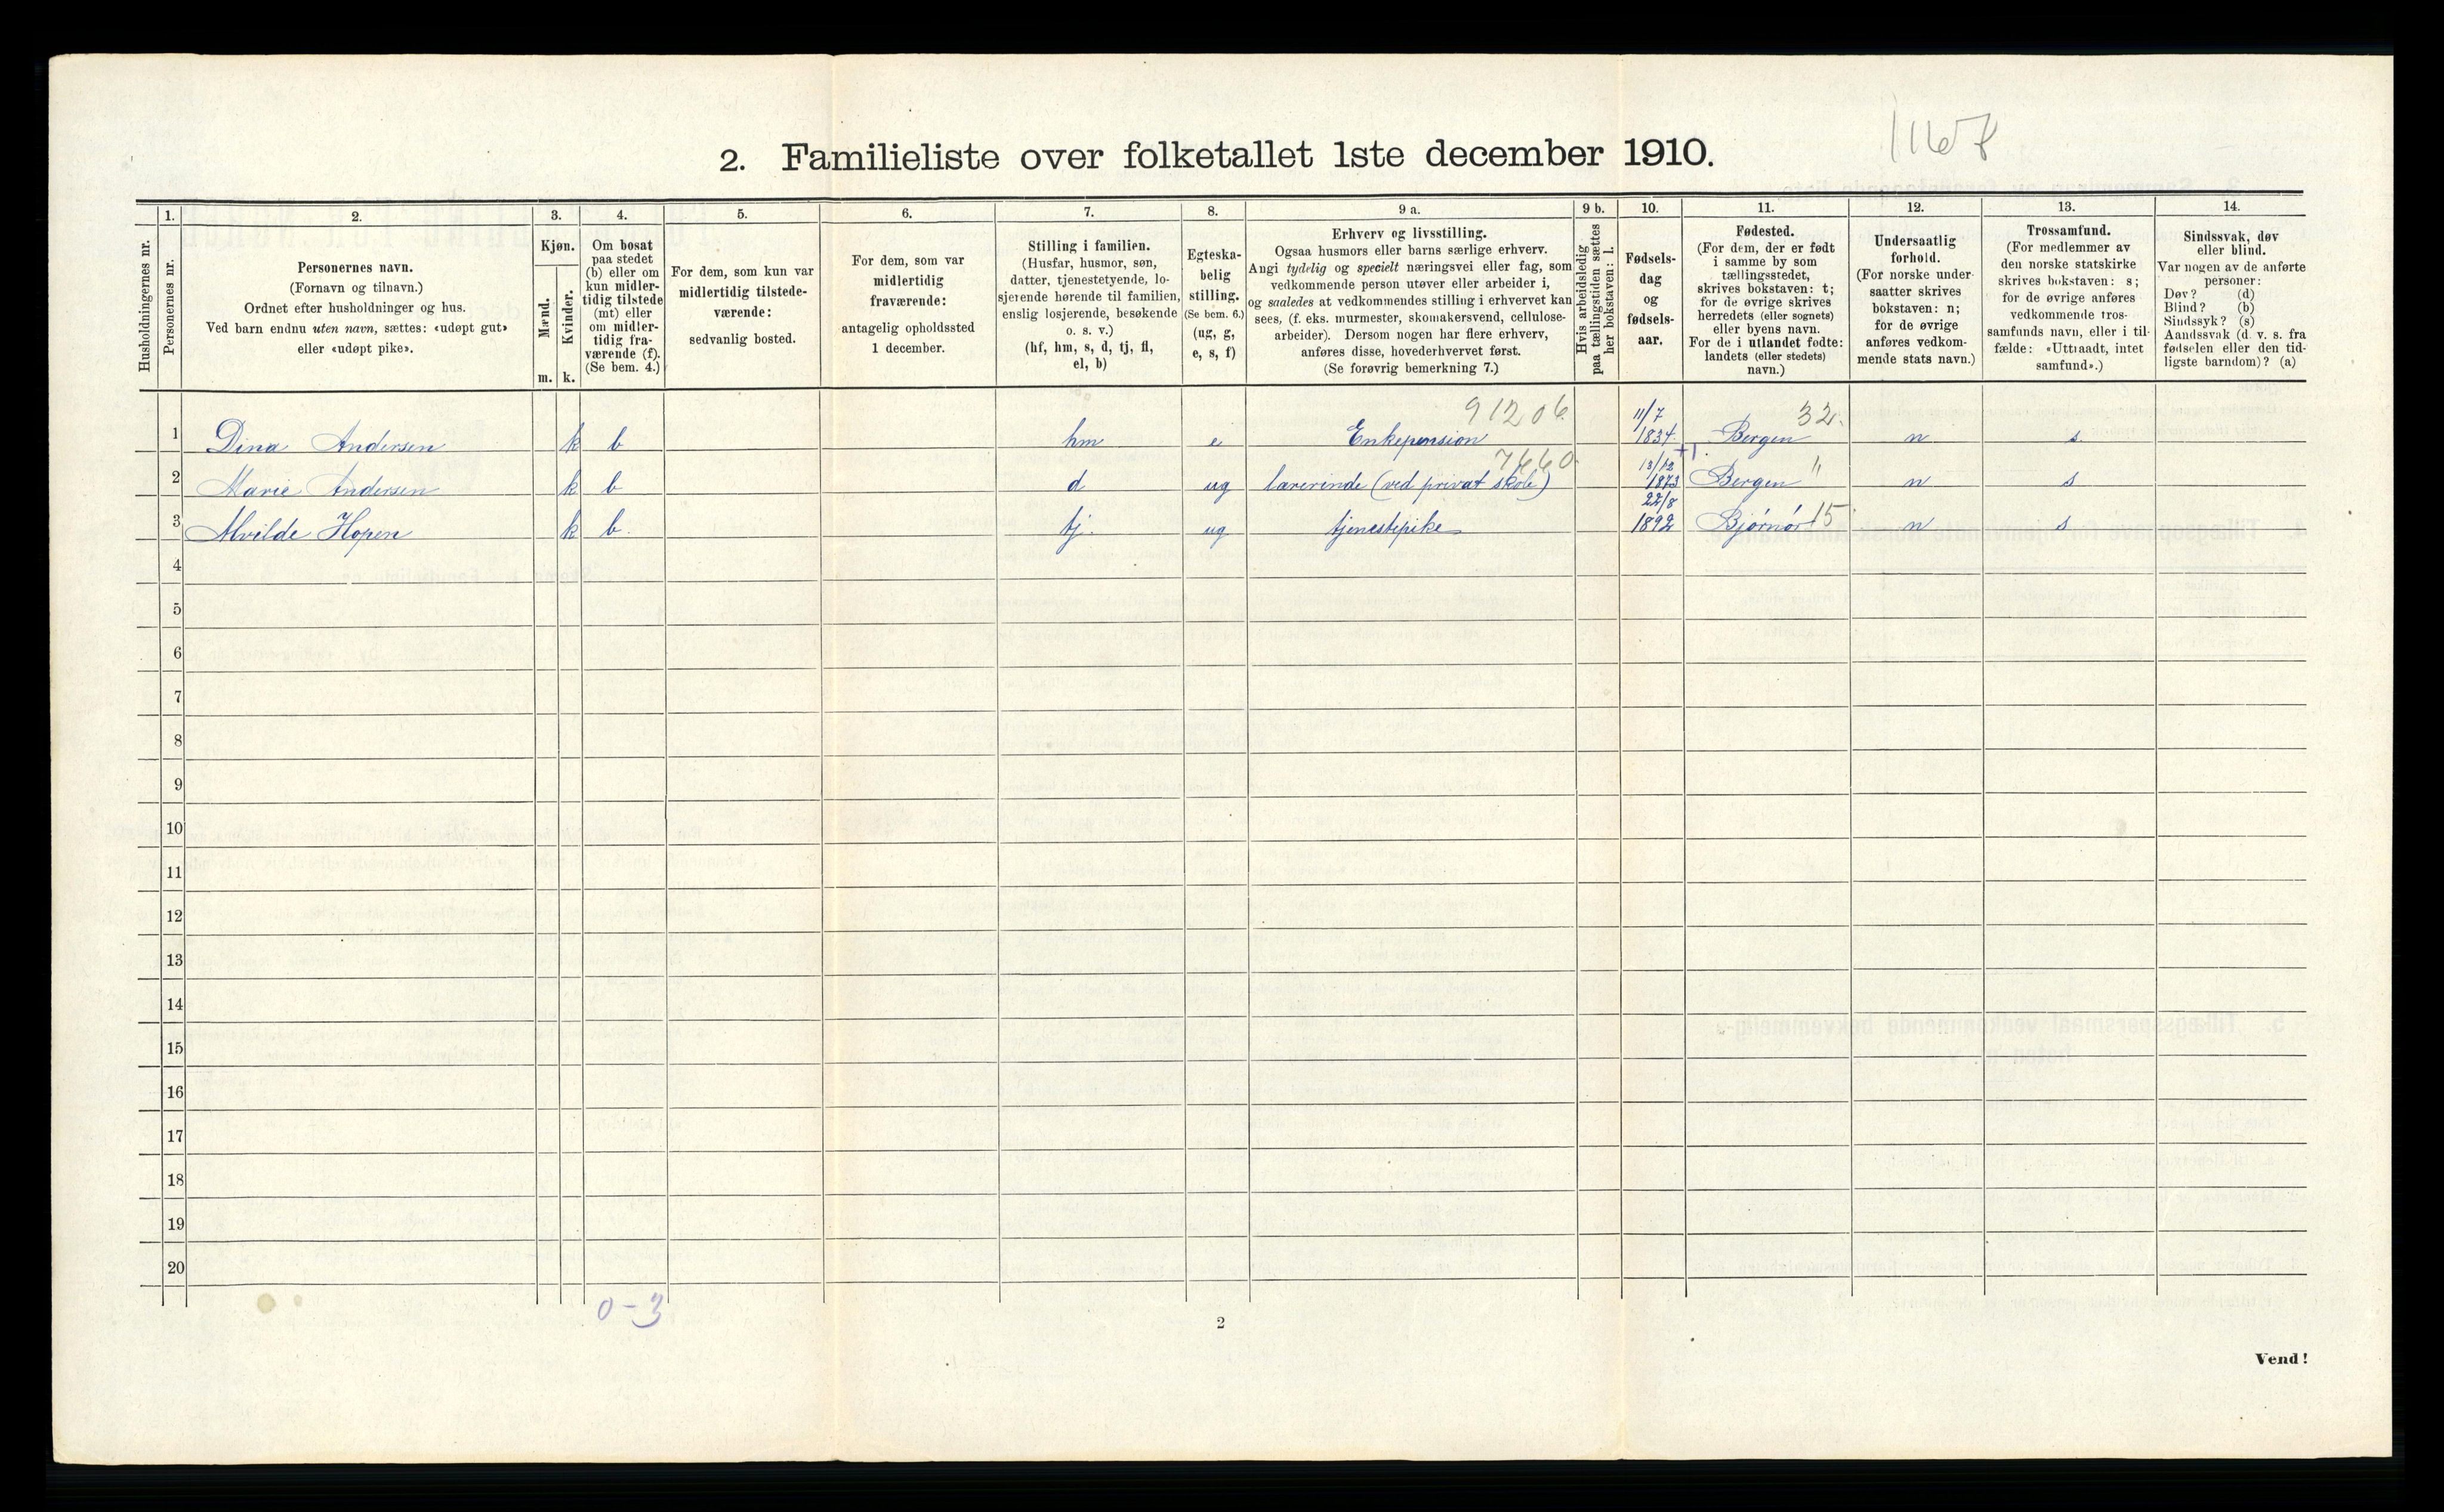 1167
2. Familieliste over folketallet 1ste december 1910.
Husholdningernes nr.
1.
Personernes nr.
2.
Personernes navn.
(Fornavn og tilnavn.)
Ordnet efter husholdninger og hus.
Ved barn endnu uten navn, sættes: «udøpt gut»
eller «udøpt pike».
3.
Kjøn.
Mænd.
Kvinder.
m. k.
4.
Om bosat
paa stedet
(b) eller om
kun midler-
tidig tilstede
(mt) eller
om midler-
tidig fra-
værende (f).
(Se bem. 4.)
5.
For dem, som kun var
midlertidig tilstede-
værende:
sedvanlig bosted.
6.
For dem, som var
midlertidig
fraværende:
antagelig opholdssted
1 december.
7.
Stilling i familien.
(Husfar, husmor, søn,
datter, tjenestetyende, lo-
sjerende hørende til familien,
enslig losjerende, besøkende
o. s. v.)
(hf, hm, s, d, tj, fl,
el, b)
8.
Egteska-
belig
stilling.
(Se bem. 6.)
(ug, g,
e, s, f)
9 a.
Erhverv og livsstilling.
Ogsaa husmors eller barns særlige erhverv.
Angi tydelig og specielt næringsvei eller fag, som
vedkommende person utøver eller arbeider i,
og saaledes at vedkommendes stilling i erhvervet kan
sees, (f. eks. murmester, skomakersvend, cellulose-
arbeider). Dersom nogen har flere erhverv,
anføres disse, hovederhvervet først.
(Se forøvrig bemerkning 7.)
9 b.
Hvis arbeidsledig
paa tællingstiden sættes
her bokstaven: l.
10.
Fødsels-
dag
og
fødsels-
aar.
11.
Fødested.
(For dem, der er født
i samme by som
tællingsstedet,
skrives bokstaven: t;
for de øvrige skrives
herredets (eller sognets)
eller byens navn.
For de i utlandet fødte:
landets (eller stedets)
navn.)
12.
Undersaatlig
forhold.
(For norske under-
saatter skrives
bokstaven: n;
for de øvrige
anføres vedkom-
mende stats navn.)
13.
Trossamfund.
(For medlemmer av
den norske statskirke
skrives bokstaven: s;
for de øvrige anføres
vedkommende tros-
samfunds navn, eller i til-
fælde: «Uttraadt, intet
samfund».)
14.
Sindssvak, døv
eller blind.
Var nogen av de anførte
personer:
Døv? (d)
Blind? (b)
Sindssyk? (s)
Aandssvak (d. v. s. fra
fødselen eller den tid-
ligste barndom)? (a)
91206 11/7 32.
1 Dina Andersen k b hm e Enkepension 1834. Bergen n s.
7660 13/12 "
2 Marie Andersen k b d ug lærerinde (ved privat skole) 1873 Bergen n s
22/8
3 Alvilde Hopen k b. tj. ug tjenestepike 1892 Bjørnør 15 n s
4
5
6
7
8
9
10
11
12
13
14
15
16
17
18
19
20
0-3
2
Vend!